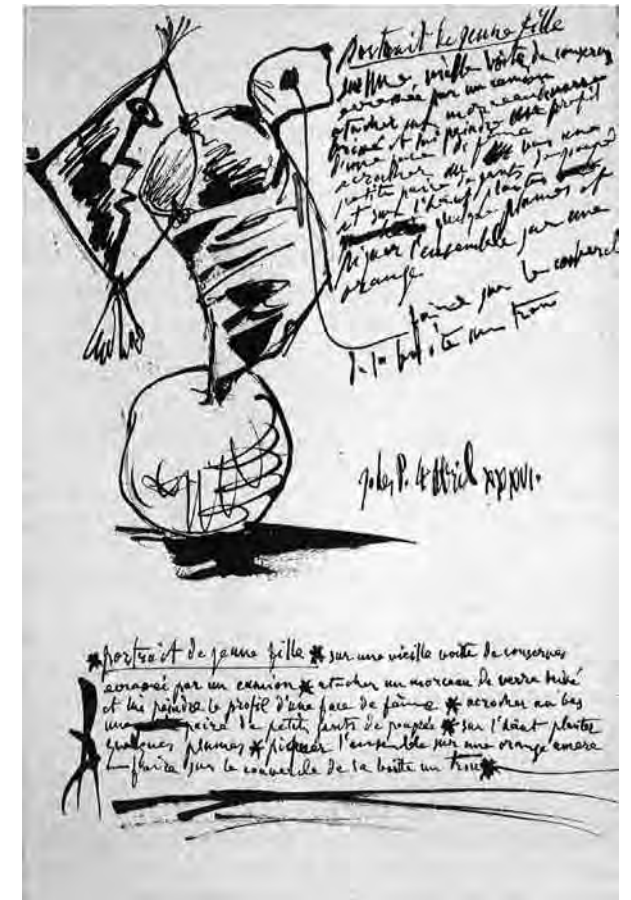 portrait de jeune fille
sur une vieille boîte de conserves
écrasée par un camion
attacher un morceau de verre
brisé et lui peindre un profil
d'une face de fame
acrocher au bas une
petite paire de gants de poupée
et sur l'haut plantes
quelques plumes et
piquer l'ensemble sur une
orange
faire sur le couvercle
de la boîte un trou
4 Avril XXXVI.
*portrait de jeune fille * sur une vieille boite de conserves
écrasée par un camion * atacher un morceau de verre brisé
et lui peindre le profil d'une face de fâme * acrocher au bas
une paire de petits gants de poupée * sur l'haut planter
quelques plumes * piquer l'ensemble sur une orange amere
faire sur le couvercle de sa boitte un trou*